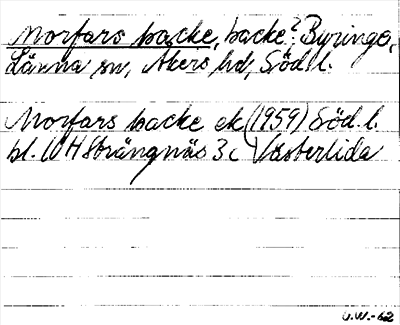 Morfars backe, backe? Byringe,
Länna sn, Åkers hd, Söd. l.
Morfars backe ek (1959) Söd. l.
bl. 10 H Strängnäs 3c Västerlida
U.W.-62